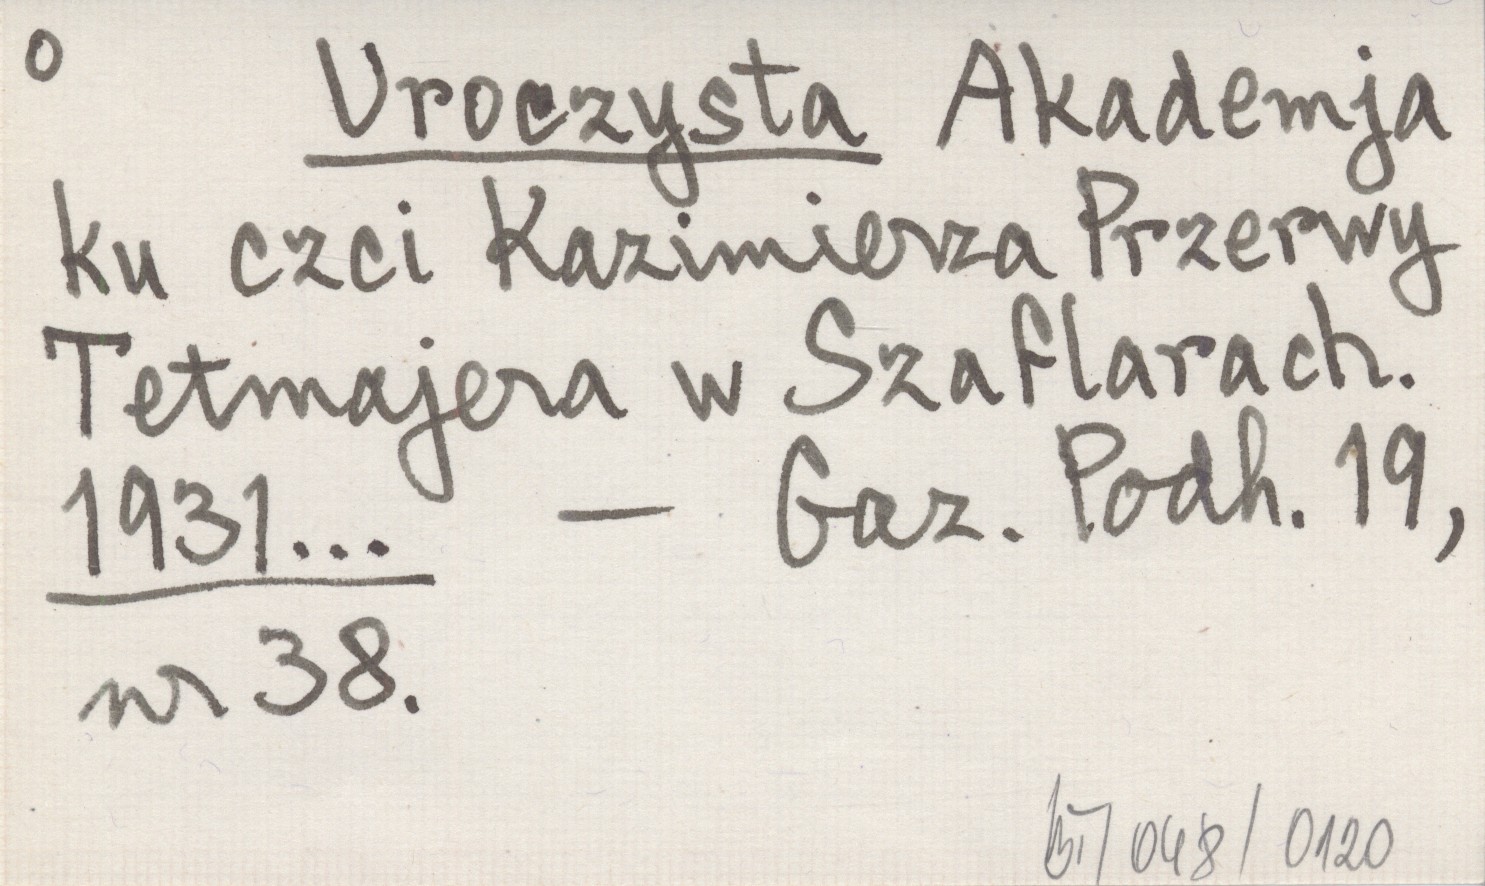 o Uroczysta Akademja
ku czci Kazimierza Przerwy
Tetmajera w Szaflarach.
1931... — Gaz. Podh. 19,
nr 38.
048/0120